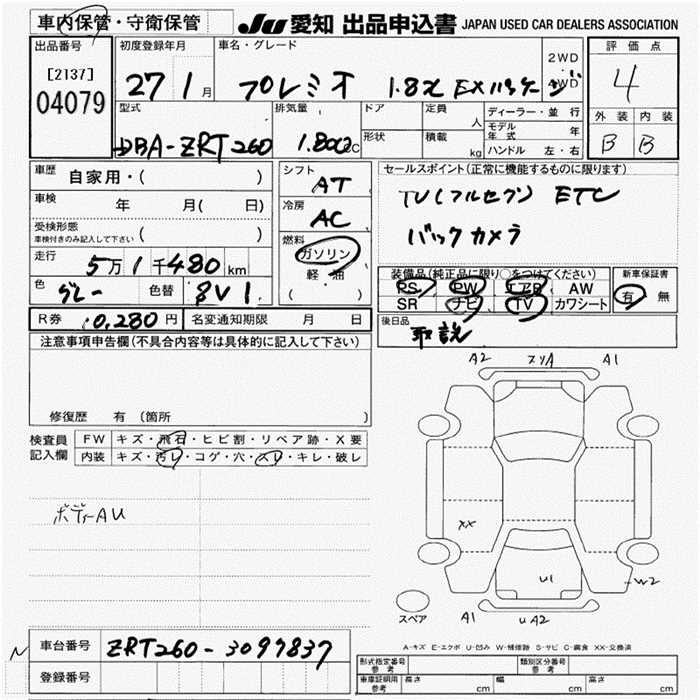 車内保管・守衛保管
JU 愛知 出品申込書 JAPAN USED CAR DEALERS ASSOCIATION
出品番号
[2137]
04079
初度登録年月
27 1 月
車名・グレード
プレミオ 1.8X EXパッケージ
2WD
4WD
評価点
4
外装 内装
B B
型式
DBA-ZRT260
排気量
1.800CC
ドア
形状
定員
人
積載
kg
ディーラー・並行
モデル年式 年
ハンドル 左・右
車歴
自家用・( )
車検
年 月( 日)
受検形態
車検付きのみ記入して下さい ( )
走行
5万1千480km
色
グレー
色替 8V1
シフト
AT
冷房
AC
燃料
ガソリン
軽・油
( )
セールスポイント(正常に機能するものに限ります)
TV(フルセグ) ETC
バックカメラ
装備品(純正品に限り○をつけてください)
PS PW エアB AW
SR ナビ TV カワシート
新車保証書
有 無
後日品
取説
R券 10,280円 名変通知期限 月 日
注意事項申告欄(不具合内容等は具体的に記入して下さい)
修復歴 有(箇所 )
検査員記入欄
FW キズ・飛石・ヒビ割・リペア跡・X要
内装 キズ・汚レ・コゲ・穴・スレ・キレ・破レ
ボディーAU
A2 スリA A1
XX
U1
W2
スペア
A1 UA2
A-キズ E-エクボ U-凹み W-補修跡 S-サビ C-腐食 XX-交換済
N
車台番号 ZRT260-3097837
登録番号
形式指定番号 参考
類別区分番号 参考
車庫証明用 参考 長さ cm 幅 cm 高さ cm